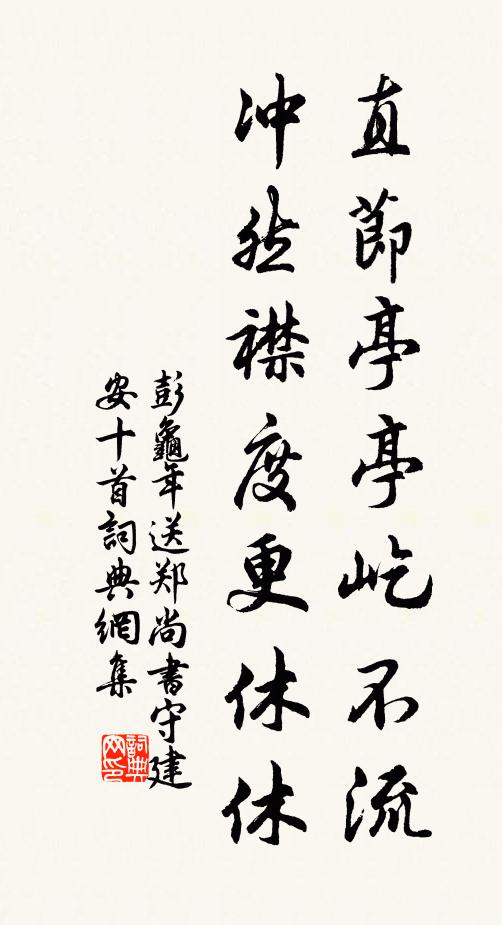 直節亭亭屹不流
冲然襟度更休休
彭龜年送郑尚書守建
安十首詞典網集
詞典
网印